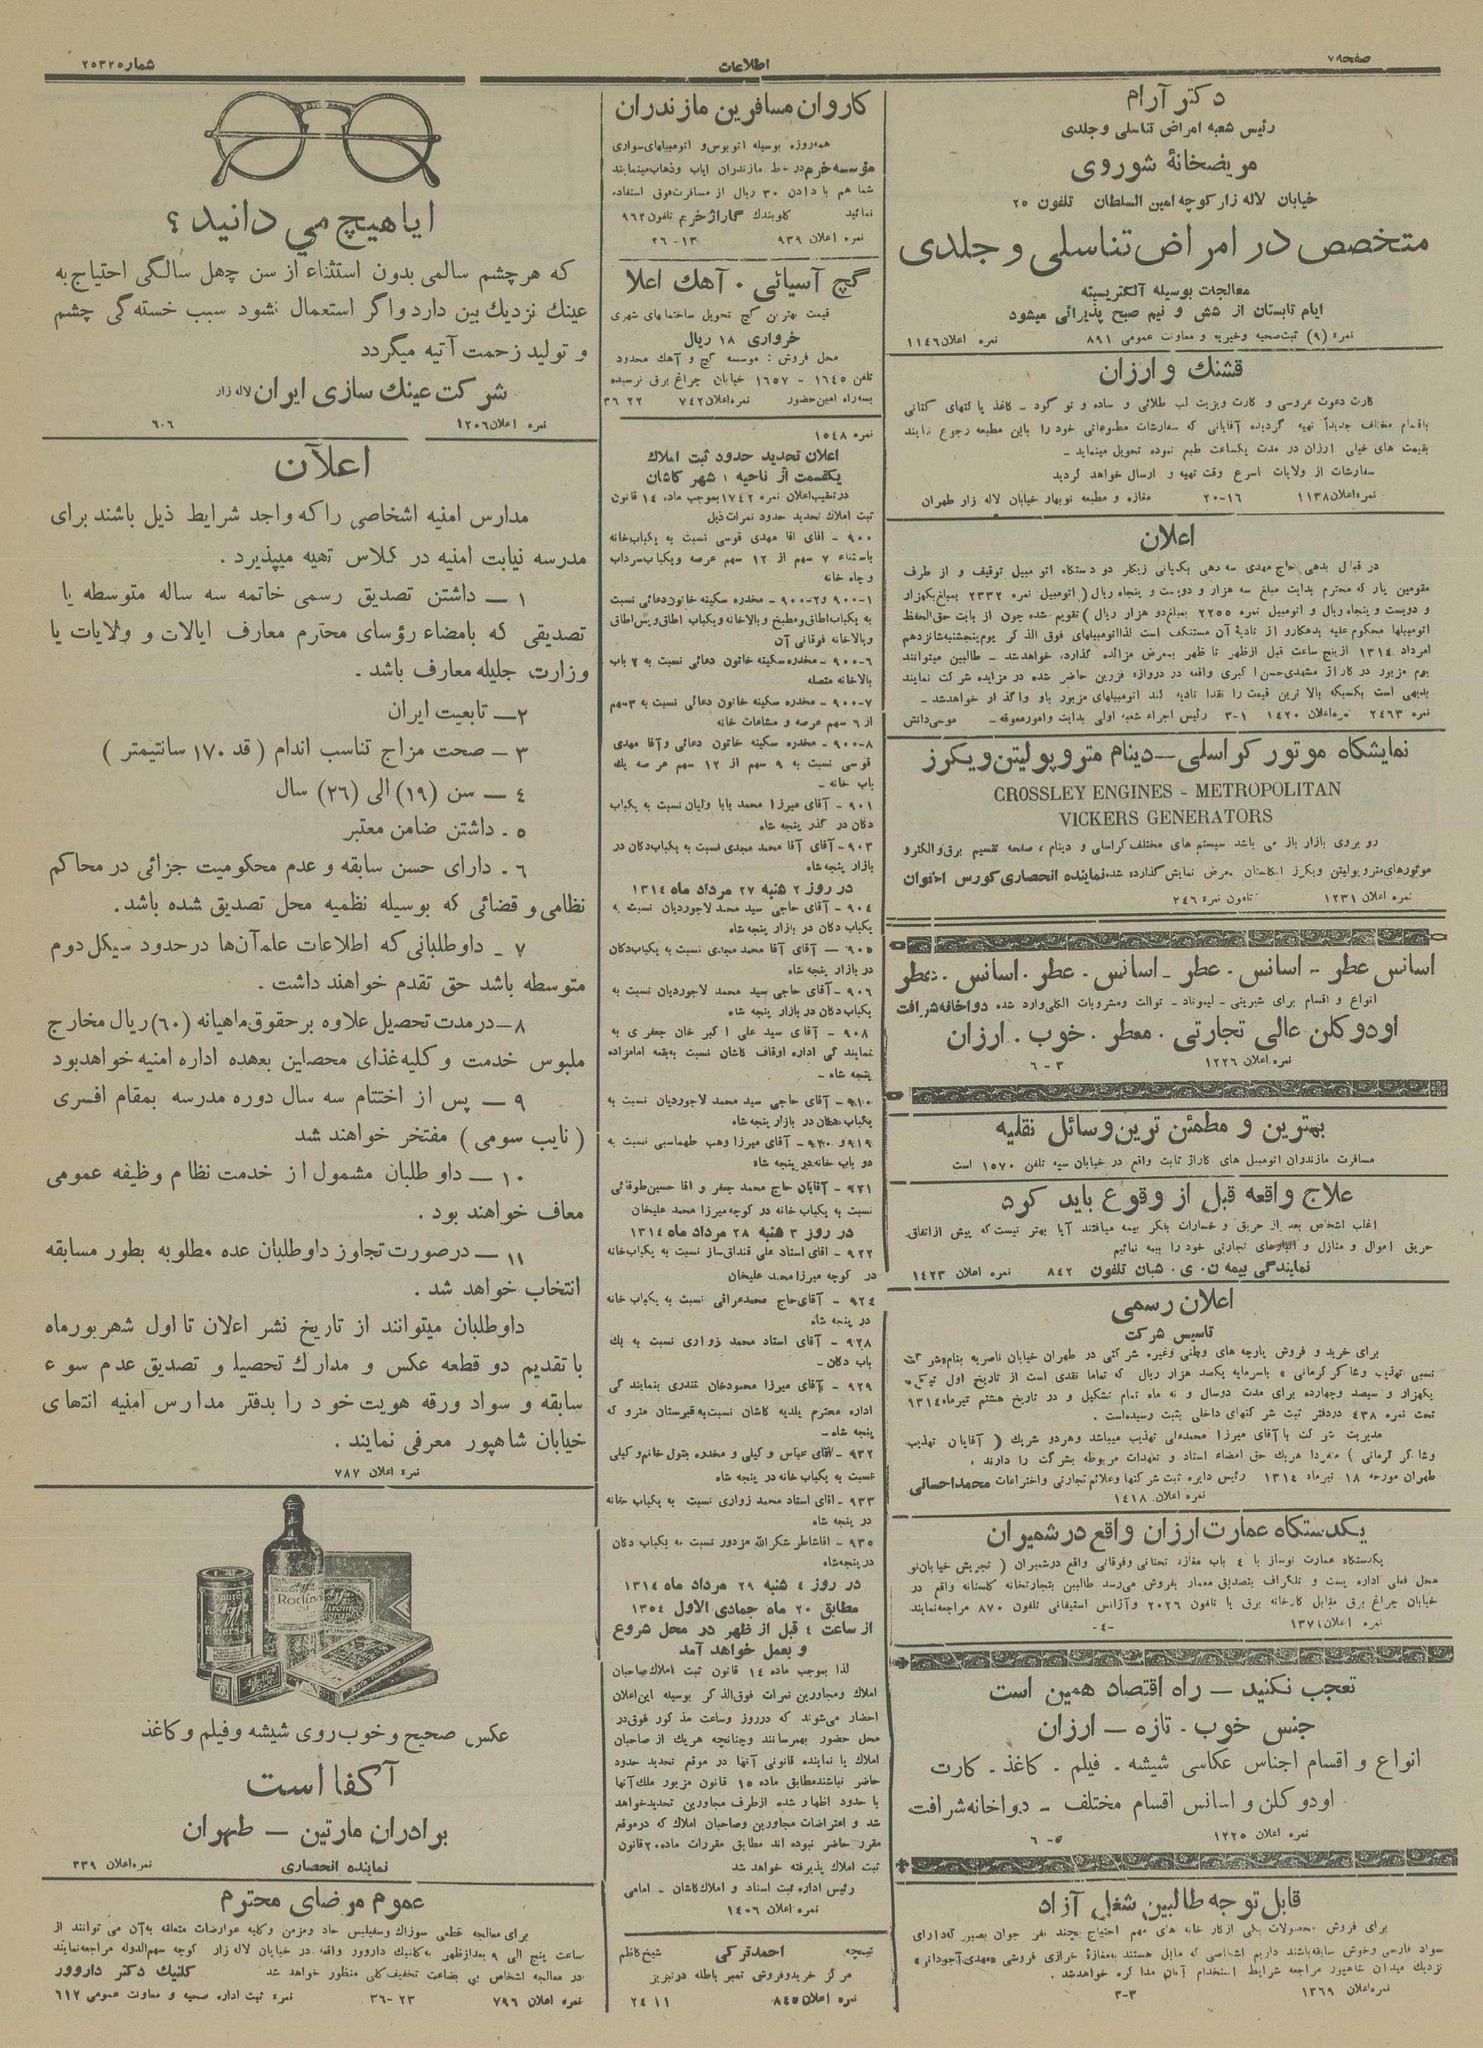 صفحه ۷۸
اطلاعات
شماره ۲۵۳۲۵
دکتر آرام
رئیس شعبه امراض تناسلی و جلدی
مریضخانهٔ شوروی
خیابان لاله زار کوچه امین السلطان تلفون ۲۵
متخصص در امراض تناسلی و جلدی
معالجات بوسیله آلکتریسیته
ایام تابستان از شش و نیم صبح پذیرائی میشود
نمره (۹) ثبت صحیه و خیریه و معاونت عمومی ۸۹۱ نمره اعلان ۱۱۴۶
قشنك و ارزان
کارت دعوت عروسی و کارت ویزیت لب طلائی و ساده و نو گود - کاغذ پاکتهای کتانی
باقسام مختلف جدیداً تهیه گردیده آقایانی که سفارشات مطبوعاتی خود را باین مطبعه رجوع نمایند
بقیمت های خیلی ارزان در مدت یکساعت طبع نموده تحویل مینماید -
سفارشات از ولایات اسرع وقت تهیه و ارسال خواهد گردید
نمره اعلان ۱۱۳۸ ۱۶-۲۰ مغازه و مطبعه نوبهار خیابان لاله زار طهران
اعلان
در قبال بدهی حاج مهدی سه دهی بکمپانی زینگر دو دستگاه اتومبیل توقیف و از طرف
مقومین یار که محترم بدایت مبلغ سه هزار و دویست و پنجاه ریال ( اتومبیل نمره ۲۳۳۲ بمبلغ یکهزار
و دویست و پنجاه ریال و اتومبیل نمره ۲۲۵۵ بمبلغ دو هزار ریال ) تقویم شده چون از بابت حق الحفظ
اتومبیلها محکوم علیه بدهکار و از تادیه آن مستنکف است لذا اتومبیلهای فوق الذکر یوم پنجشنبه شانزدهم
امرداد ۱۳۱۴ از پنج ساعت قبل از ظهر تا ظهر بمعرض مزائده گذارده خواهد شد - طالبین میتوانند
یوم مزبور در گاراژ مشهدی حسن اکبری واقعه در دروازه قزوین حاضر شده در مزایده شرکت نمایند
بدیهی است بکسیکه بالا ترین قیمت را نقدا تادیه کند اتومبیلهای مزبور باو واگذار خواهد شد -
نمره ۲۴۶۳ نمره اعلان ۱۴۲۰ ۱-۳ رئیس اجراء شعبه اولی بدایت و امور معوقه - موسی دانش
نمایشگاه موتور کراسلی - دینام متروپولیتن ویکرز
CROSSLEY ENGINES - METROPOLITAN
VICKERS GENERATORS
رو بروی بازار باز می باشد سیستم های مختلف کراسلی و دینام ، صفحه تقسیم برق والکترو
موتورهای متروپولیتن ویکرز انگلستان بمعرض نمایش گذارده شده نماینده انحصاری کورس اخوان
نمره اعلان ۱۲۳۱ تلفون نمره ۲۴۶
اسانس عطر - اسانس . عطر - اسانس . عطر . اسانس . عطر
انواع و اقسام برای شیرینی - لیموناد - توالت ومشروبات الکلی وارد شده دواخانه شرافت
اودوکلن عالی تجارتی . معطر . خوب . ارزان
نمره اعلان ۱۲۲۶ ۳ - ۶
بهترین و مطمئن ترین وسائل نقلیه
مسافرت مازندران اتومبیل های گاراژ ثابت واقع در خیابان سپه تلفن ۱۵۷۰ است
علاج واقعه قبل از وقوع باید کرد
اغلب اشخاص بعد از حریق و خسارات بفکر بیمه میافتند آیا بهتر نیست که پیش از اتفاق
حریق اموال و منازل و انبارهای تجارتی خود را بیمه نمائیم
نمایندگی بیمه ن . ی . شبان تلفون ۸۴۲ نمره اعلان ۱۴۲۳
اعلان رسمی
تاسیس شرکت
برای خرید و فروش پارچه های وطنی وغیره شرکتی در طهران خیابان ناصریه بنام «شرکت
نسبی تهذیب وشاکر کرمانی » باسرمایه یکصد هزار ریال که تماما نقدی است از تاریخ اول تیرماه
یکهزار و سیصد و چهارده برای مدت دوسال و نه ماه تمام تشکیل و در تاریخ هشتم تیرماه ۱۳۱۴
تحت نمره ۴۳۸ دردفتر ثبت شرکتهای داخلی بثبت رسیده است .
مدیریت شرکت با آقای میرزا محمدعلی تهذیب میباشد وهردو شریك ( آقایان تهذیب
وشاکر کرمانی ) منفردا هریك حق امضاء اسناد و تعهدات مربوطه بشرکت را دارند .
طهران مورخه ۱۸ تیرماه ۱۳۱۴ رئیس دایره ثبت شرکتها وعلائم تجارتی واختراعات محمد احسائی
نمره اعلان ۱۴۱۸
یکدستگاه عمارت ارزان واقع در شمیران
یکدستگاه عمارت نوساز با ۴ باب مغازه تحتانی وفوقانی واقع درشمیران ( تجریش خیابان نو
محل فعلی اداره پست و تلگراف بتصدیق معمار بفروش می رسد طالبین بتجارتخانه گلستانه واقع در
خیابان چراغ برق مقابل کارخانه برق یا تلفون ۲۰۲۶ وآژانس استیفانی تلفون ۸۷۰ مراجعه نمایند
نمره اعلان ۱۳۷۱ -۴-
تعجب نکنید - راه اقتصاد همین است
جنس خوب . تازه - ارزان
انواع و اقسام اجناس عکاسی شیشه . فیلم . کاغذ . کارت
اودوکلن و اسانس اقسام مختلف - دواخانه شرافت
نمره اعلان ۱۲۲۵ ۵-۶
قابل توجه طالبین شغل آزاد
برای فروش محصولات یکی از کار خانه های مهم احتیاج بچند نفر جوان بصیر که دارای
سواد فارسی وخوش سابقه باشند داریم اشخاصی که مایل هستند به مغازهٔ خرازی فروشی «مهدی آجودانی»
نزدیك میدان شاهپور مراجعه شرایط استخدام آنان مذاکره خواهد شد .
نمره اعلان ۱۳۶۹ ۳-۳
کاروان مسافرین مازندران
همه روزه بوسیله اتوبوس و اتومبیلهای سواری
مؤسسه خرم در خط مازندران ایاب وذهاب مینمایند
شما هم با دادن ۳۰ ریال از مسافرت فوق استفاده
نمائید کلوبندك گاراژ خرم تلفون ۹۶۲
نمره اعلان ۹۳۹ ۱۳-۲۶
گچ آسیائی . آهك اعلا
قیمت بهترین گچ تحویل ساختمانهای شهری
خرواری ۱۸ ریال
محل فروش : موسسه گچ و آهك محدود
تلفن ۱۶۴۵ - ۱۶۵۷ خیابان چراغ برق نرسیده
بسه راه امین حضور نمره اعلان ۷۴۲ ۲۲ ۳۶
نمره ۱۵۴۸
اعلان تحدید حدود ثبت املاك
یکقسمت از ناحیه ۱ شهر کاشان
در تعقیب اعلان نمره ۱۷۴۲ بموجب ماده ۱۴ قانون
ثبت املاك تحدید حدود نمرات ذیل
۹۰۰ - آقای آقا مهدی قوسی نسبت به یکباب خانه
باستثناء ۷ سهم از ۱۲ سهم عرصه ویکباب سرداب
و چاه خانه
۱-۹۰۰ و۲-۹۰۰ - مخدره سکینه خاتون دعائی نسبت
به یکباب اطاق ومطبخ وبالاخانه ویکباب اطاق وپس اطاق
وبالاخانه فوقانی آن
۶-۹۰۰ - مخدره سکینه خاتون دعائی نسبت به ۲ باب
بالاخانه متصله
۷-۹۰۰ - مخدره سکینه خاتون دعائی نسبت به ۳ سهم
از ۶ سهم عرصه و مشاعات خانه
۸-۹۰۰ - مخدره سکینه خاتون دعائی وآقا مهدی
قوسی نسبت به ۹ سهم از ۱۲ سهم عرصه یك
باب خانه -
۹۰۱ - آقای میرزا محمد بابا ولیان نسبت به یکباب
دکان در گذر پنجه شاه
۹۰۳ - آقای آقا محمد مجدی نسبت به یکباب دکان در
بازار پنجه شاه
در روز ۲ شنبه ۲۷ مرداد ماه ۱۳۱۴
۹۰۴ - آقای حاجی سید محمد لاجوردیان نسبت به
یکباب دکان در بازار پنجه شاه
۹۰۵ - آقای آقا محمد مجدی نسبت به یکباب دکان
در بازار پنجه شاه
۹۰۶ - آقای حاجی سید محمد لاجوردیان نسبت به
یکباب دکان در بازار پنجه شاه
۹۰۸ - آقای سید علی اکبر خان جعفری به
نمایندگی اداره اوقاف کاشان نسبت به بقعه امامزاده
پنجه شاه -
۹۱۰ - آقای حاجی سید محمد لاجوردیان نسبت به
یکباب دکان در بازار پنجه شاه
۹۱۹ و ۹۲۰ - آقای میرزا وهب طهماسبی نسبت به
دو باب خانه در پنجه شاه
۹۲۱ - آقایان حاج محمد جعفر و آقا حسین طوقانی
نسبت به یکباب خانه در کوچه میرزا محمد علیخان
در روز ۳ شنبه ۲۸ مرداد ماه ۱۳۱۴
۹۲۲ - آقای استاد علی قنداق ساز نسبت به یکباب خانه
در کوچه میرزا محمد علیخان
۹۲۴ - آقای حاج محمد عراقی نسبت به یکباب خانه
در پنجه شاه
۹۲۸ - آقای استاد محمد زواری نسبت به یك
باب دکان -
۹۲۹ - آقای میرزا محمودخان غندری بنمایندگی
اداره محترم بلدیه کاشان نسبت به قبرستان متروکه
پنجه شاه -
۹۳۲ - آقای عباس وکیلی و مخدره بتول خانم وکیلی
نسبت به یکباب خانه در پنجه شاه
۹۳۳ - آقای استاد محمد زواری نسبت به یکباب خانه
در پنجه شاه
۹۳۵ - آقا شاطر شکرالله مزدور نسبت به یکباب دکان
در پنجه شاه
در روز ۴ شنبه ۲۹ مرداد ماه ۱۳۱۴
مطابق ۲۰ ماه جمادی الاول ۱۳۵۴
از ساعت ۴ قبل از ظهر در محل شروع
و بعمل خواهد آمد
لذا بموجب ماده ۱۴ قانون ثبت املاك صاحبان
املاك ومجاورین نمرات فوق الذکر بوسیله این اعلان
احضار می شوند که درروز وساعت مذکور فوق در
محل حضور بهمرسانند وچنانچه هریك از صاحبان
املاك یا نماینده قانونی آنها در موقع تحدید حدود
حاضر نباشند مطابق ماده ۱۵ قانون مزبور ملك آنها
با حدود اظهار شده ازطرف مجاورین تحدید خواهد
شد و اعتراضات مجاورین وصاحبان املاك که درموقع
مقرر حاضر نبوده اند مطابق مقررات ماده ۲۰ قانون
ثبت املاك پذیرفته خواهد شد
رئیس اداره ثبت اسناد و املاك کاشان - امامی
نمره اعلان ۱۴۰۶
تیمچه احمد ترکی شیخ کاظم
مرکز خرید وفروش تمبر باطله در تبریز
نمره اعلان ۸۴۵ ۱۱ ۲۴
ایا هیچ می دانید ؟
که هر چشم سالمی بدون استثناء از سن چهل سالگی احتیاج به
عینك نزدیك بین دارد واگر استعمال نشود سبب خسته گی چشم
و تولید زحمت آتیه میگردد
شرکت عینك سازی ایران لاله زار
نمره اعلان ۱۲۰۶ ۶۰۶
اعلان
مدارس امنیه اشخاصی را که واجد شرایط ذیل باشند برای
مدرسه نیابت امنیه در کلاس تهیه میپذیرد .
۱ - داشتن تصدیق رسمی خاتمه سه ساله متوسطه یا
تصدیقی که بامضاء رؤسای محترم معارف ایالات و ولایات یا
وزارت جلیله معارف باشد .
۲ - تابعیت ایران
۳ - صحت مزاج تناسب اندام ( قد ۱۷۰ سانتیمتر )
۴ - سن (۱۹) الی (۲۶) سال
۵ . داشتن ضامن معتبر
۶ . دارای حسن سابقه و عدم محکومیت جزائی در محاکم
نظامی و قضائی که بوسیله نظمیه محل تصدیق شده باشد .
۷ - داوطلبانی که اطلاعات علمی آن‌ها درحدود سیکل دوم
متوسطه باشد حق تقدم خواهند داشت .
۸ - درمدت تحصیل علاوه بر حقوق ماهیانه (۶۰) ریال مخارج
ملبوس خدمت و کلیه غذای محصلین بعهده اداره امنیه خواهد بود
۹ - پس از اختتام سه سال دوره مدرسه بمقام افسری
( نایب سومی ) مفتخر خواهند شد
۱۰ - داوطلبان مشمول از خدمت نظام وظیفه عمومی
معاف خواهند بود .
۱۱ - درصورت تجاوز داوطلبان عده مطلوبه بطور مسابقه
انتخاب خواهد شد .
داوطلبان میتوانند از تاریخ نشر اعلان تا اول شهریور ماه
با تقدیم دو قطعه عکس و مدارك تحصیلی و تصدیق عدم سوء
سابقه و سواد ورقه هویت خود را بدفتر مدارس امنیه انتهای
خیابان شاهپور معرفی نمایند .
نمره اعلان ۷۸۷
Agfa
Rodinal
عکس صحیح و خوب روی شیشه و فیلم و کاغذ
آکفا است
برادران مارتین - طهران
نماینده انحصاری
نمره اعلان ۳۳۹
عموم مرضای محترم
برای معالجه قطعی سوزاك وسفیلیس حاد ومزمن وکلیه عوارضات متعلقه به آن می توانند از
ساعت پنج الی ۹ بعد از ظهر به کلنیك داروور واقعه در خیابان لاله زار کوچه سهم الدوله مراجعه نمایند
در معالجه اشخاص بی بضاعت تخفیف کلی منظور خواهد شد کلنیك دکتر داروور
نمره اعلان ۷۹۶ ۲۳-۳۶ نمره ثبت اداره صحیه و معاونت عمومی ۶۱۲